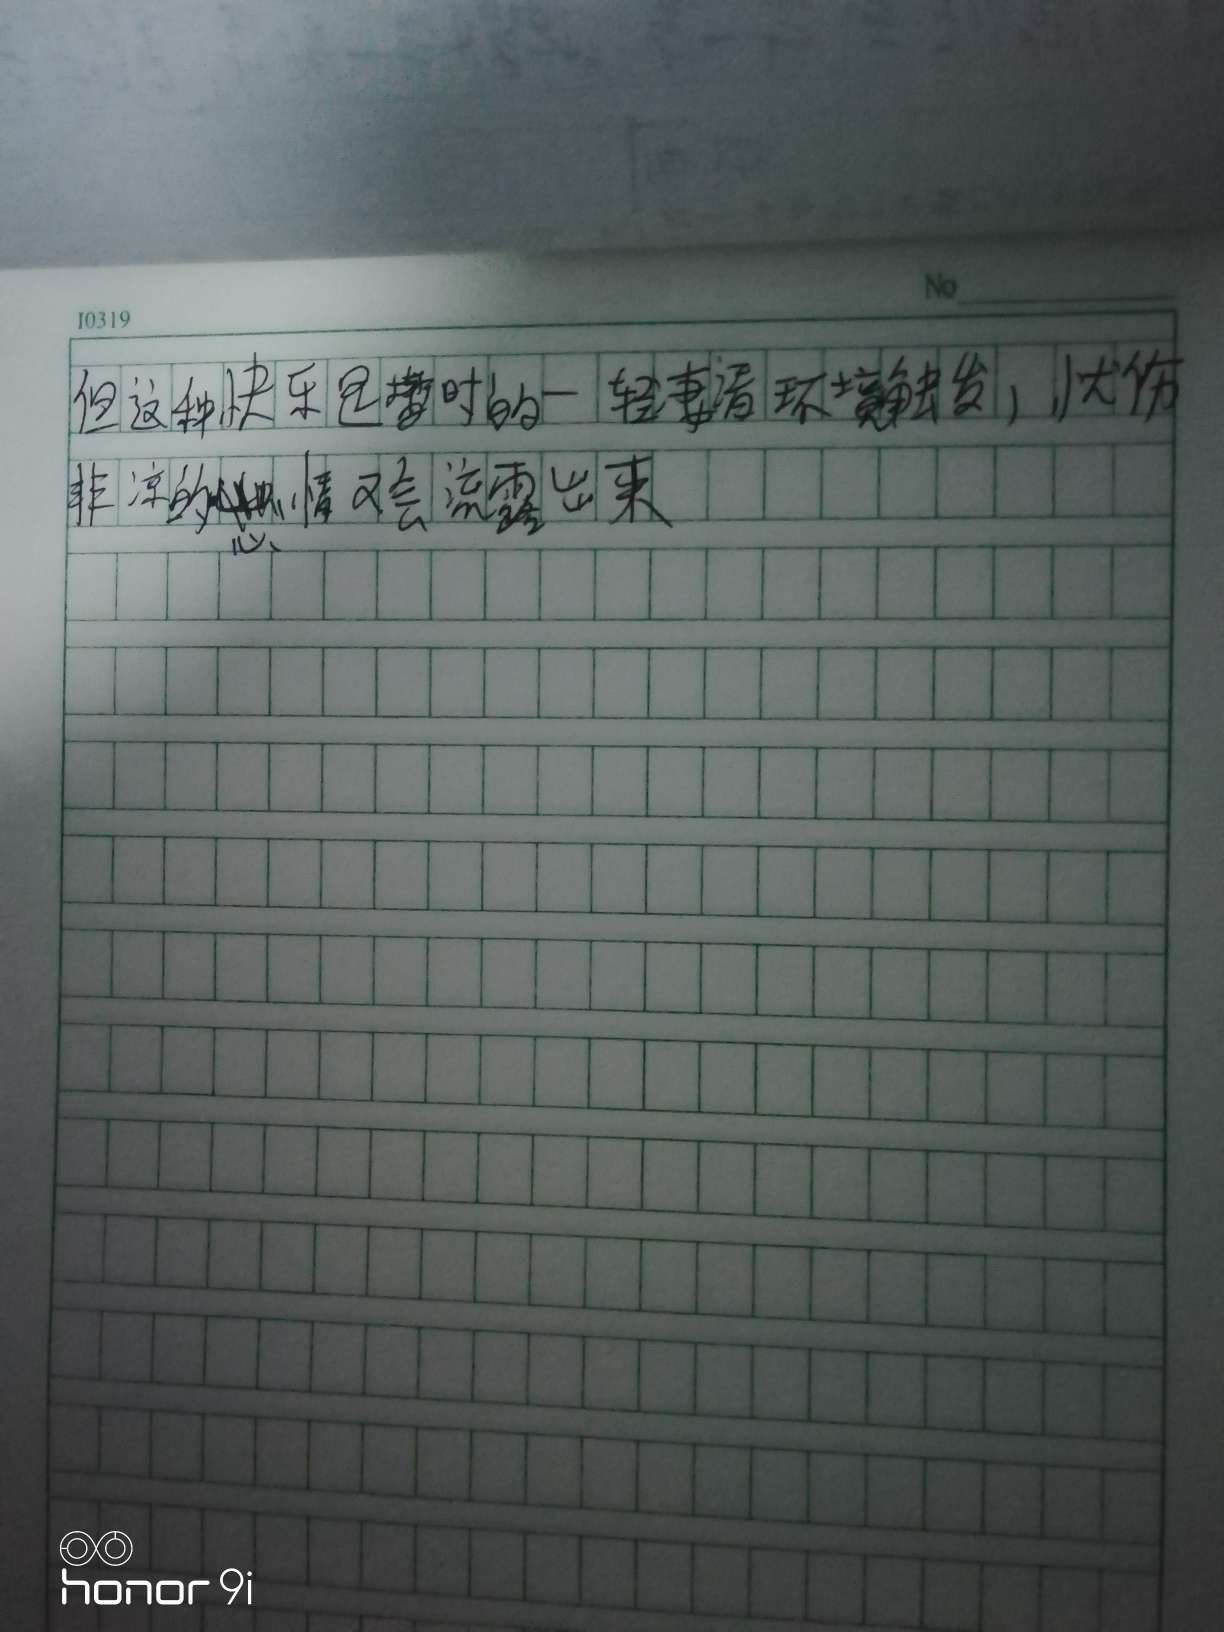 No
I0319
但这种快乐是暂时的一轻事清环境触发,忧伤
非凉的心情又会流露出来
honor 9i